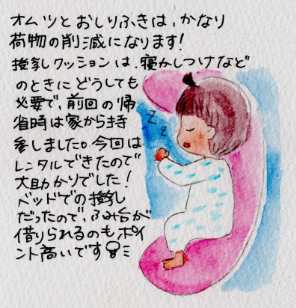 オムツとおしりふきは、かなり
荷物の削減になります!
授乳クッションは、寝かしつけなど
のときにどうしても
必要で、前回の帰
省時は家から持
参しました。今回は
レンタルできたので
大助かりでした!
ベッドでの授乳
だったので、ふみ台が
借りられるのもポイ
ント高いです
z z z